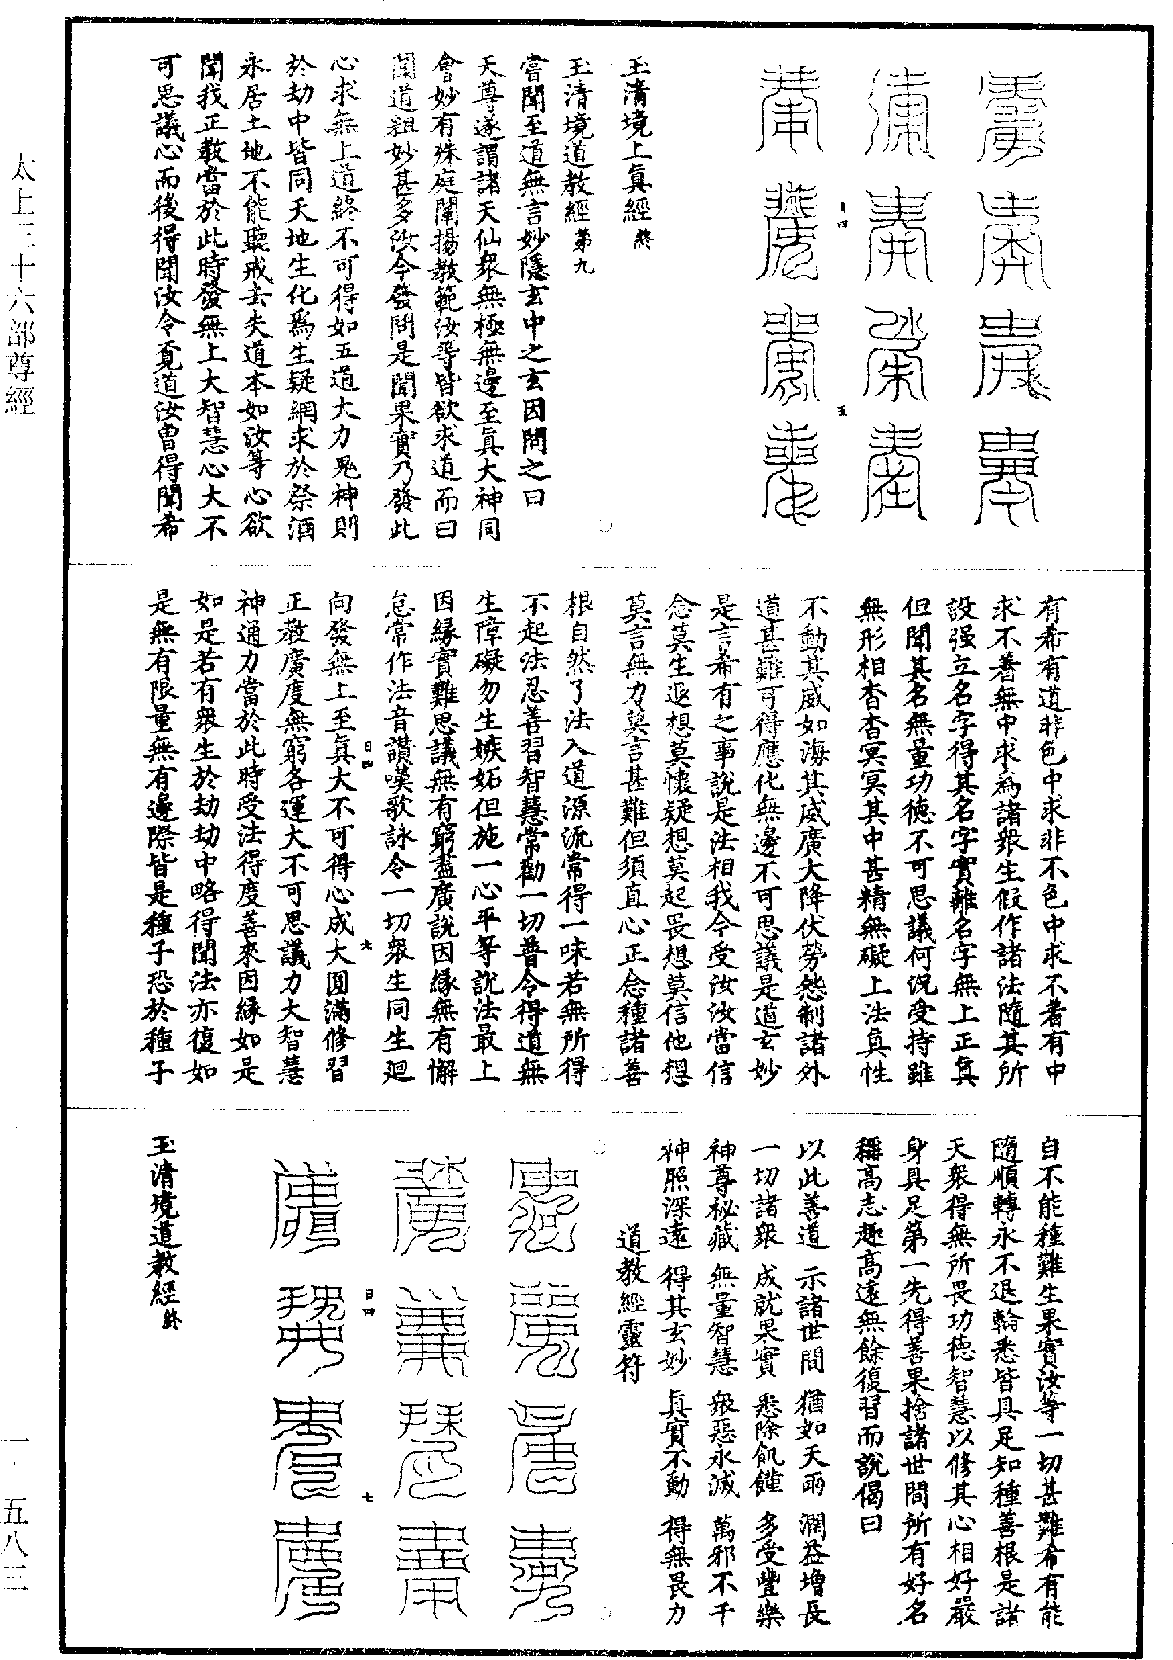 太上三十六部尊經
玉清境上眞經終
玉清境道教經第九
嘗聞至道無言妙隱玄中之玄因問之曰
天尊遂謂諸天仙衆無極無邊至眞大神同
會妙有殊庭闡揚教範汝等皆欲求道而曰
聞道粗妙甚多汝今發問是聞果實乃發此
心求無上道終不可得如五道大力鬼神則
於劫中皆同天地生化爲生疑網求於祭酒
永居土地不能聽戒去失道本如汝等心欲
聞我正教當於此時發無上大智慧心大不
可思議心而後得聞汝今覓道汝曹得聞希
有希有道非色中求非不色中求不著有中
求不著無中求爲諸衆生假作諸法隨其所
設强立名字得其名字實難名字無上正眞
但聞其名無量功德不可思議何況受持雖
無形相杳杳冥冥其中甚精無礙上法真性
不動其威如海其威廣大降伏勞怨制諸外
道甚難可得應化無邊不可思議是道玄妙
是言希有之事說是法相我今受汝汝當信
念莫生返想莫懷疑想莫起畏想莫信他想
莫言無力莫言甚難但須直心正念種諸善
根自然了法入道源流常得一味若無所得
不起法忍善習智慧常勸一切普令得道無
生障礙勿生嫉妬但施一心平等說法最上
因緣實難思議無有窮盡廣說因緣無有懈
怠常作法音讚嘆歌詠令一切衆生同生迴
向發無上至眞大不可得心成大圓滿修習
正教廣度無窮各運大不可思議力大智慧
神通力當於此時受法得度善來因緣如是
如是若有衆生於劫劫中略得聞法亦復如
是無有限量無有邊際皆是種子恐於種子
自不能種難生果實汝等一切甚難希有能
隨順轉永不退輪悉皆具足知種善根是諸
天衆得無所畏功德智慧以修其心相好嚴
身具足第一先得善果捨諸世間所有好名
稱高志趣高遠無餘復習而說偈曰
以此善道　示諸世間　猶如天雨　潤益增長
一切諸衆　成就果實　悉除飢饉　多受豐樂
神尊秘藏　無量智慧　衆惡永滅　萬邪不干
神照深遠　得其玄妙　眞實不動　得無畏力
道教經靈符
玉清境道教經終
一・五八三